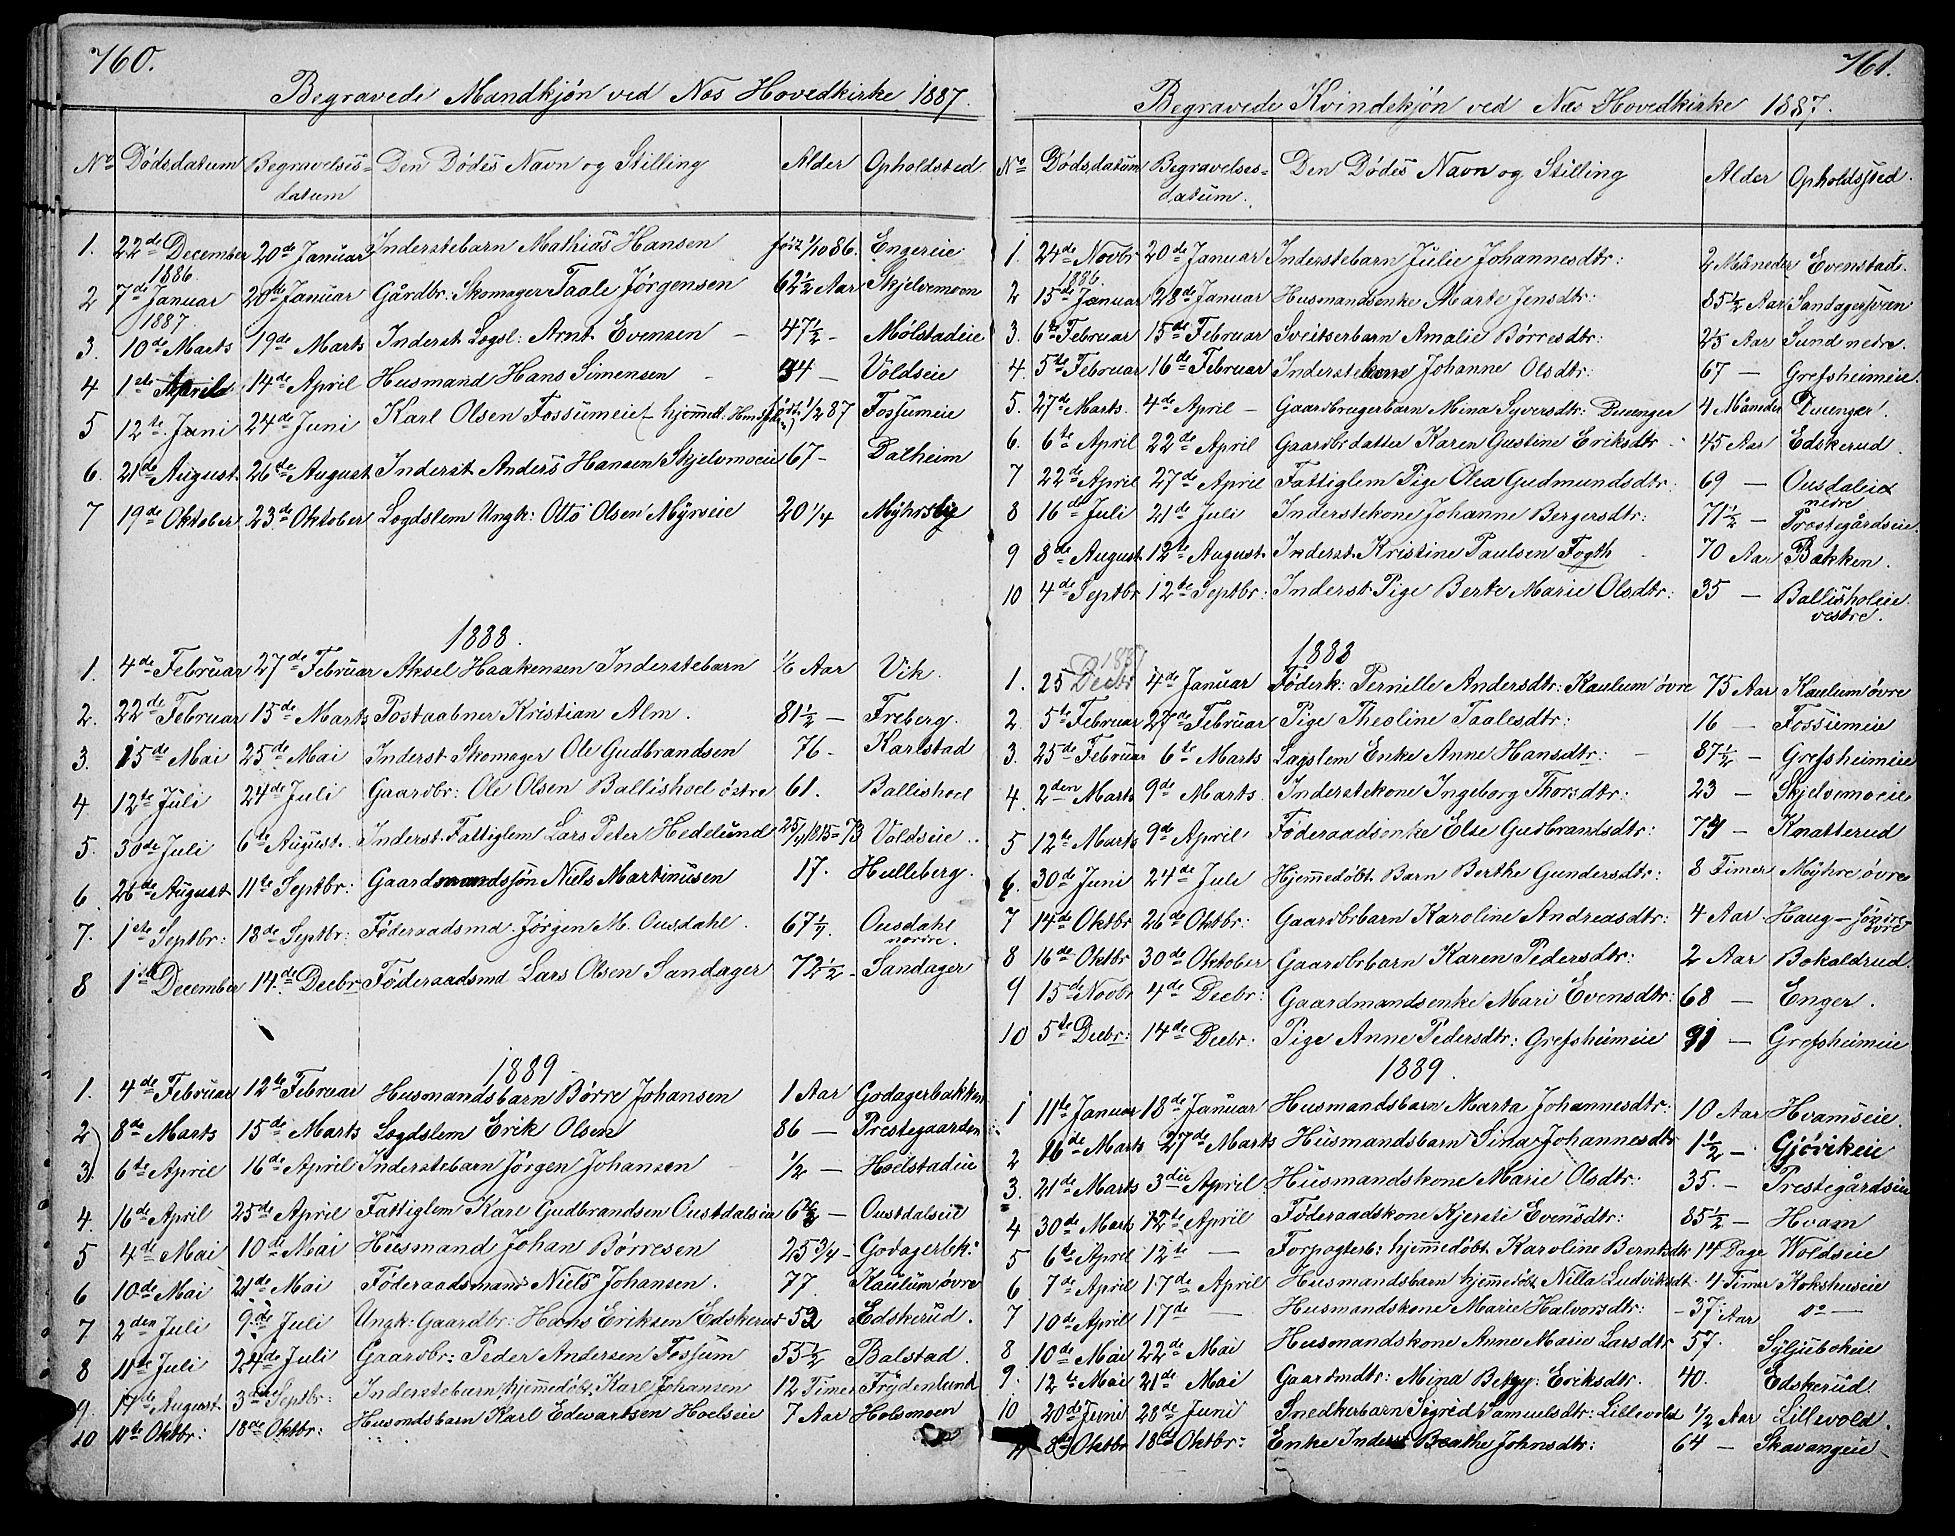 760.
Begravede Mandkjøn ved Næs Hovedkirke 1887.
No Dødsdatum Begravelses- Den Dødes Navn og Stilling Alder Opholdsted.
datum
1. 22de December 20de Januar Inderstebarn Mathias Hansen født 1/10 86. Engereie
1886.
2 7de Januar 20de Januar Gårdbr: Skomager Taale Jørgensen 62½ Aar Skjelvemoen
1887.
3. 10de Marts 19de Marts Inderst Logsl: Arnt Evensen – 47½ - Mølstadeie
4 1ste April 14de April Husmand Hans Simensen - 34 — Voldseie
5 12te Juni 24de Juni Karl Olsen Fossumeie - hjemmd. født 1/2 87 Fossumeie
6. 21de August 26de August Inderst Anders Hansen Skjelvmoeie 67 - Dalheim
7 19de Oktober 23de Oktober Logdslem Ungk: Otto Olsen Myrseie 20 1/4 Myhrsby
1888.
1. 4de Februar 27de Februar Aksel Haakensen Inderstebarn 1/6 Aar Vik.
2. 22de Februar 15de Marts Postaabner Kristian Alm. 81½ — Freberg.
3. 15de Mai 25de Mai Inderst Skomager Ole Gudbrandsen 76 - Karlstad
4 12te Juli 24de Juli Gaardbr: Ole Olsen Ballishoel østre 61. Ballishoel
5. 30de Juli 6te August. Inderst Fattiglem Lars Peter Hedelund 1815 = 73 Voldseie
6 26de August 11te Septbr: Gaardmandssøn Niels Martinusen 17. Hulleberg.
7. 1ste Septbr: 18de Septbr: Føderaadsmd. Jørgen M. Ousdahl. 67 Ousdahl
nordre.
8 1ste December 14de Decbr Føderaadsmd Lars Olsen Sandager 72½ - Sandager
1889
1. 4de Februar 12te Februar Husmandsbarn Børre Johansen 1 Aar Godagerbakken
2 8de Marts 15de Marts Logdslem Erik Olsen 86 — Prestegaarden
3. 6te April 16de April Inderstebarn Jørgen Johansen – 1/2 — Hoelstadeie
4. 16de April 25de April Fattiglem Karl Gudbrandsen Oustdalseie 62 — Oustdalseie
5 4de Mai 10de Mai Husmand Johan Børresen 25 3/4 - Godagerbk:
6 10de Mai 21de Mai Føderaadsmand Niels Johansen. 77. Kaulum øvre
7 2den Juli 9de Juli Ungk: Gaardbr: Hans Eriksen Edskerud 52 Edskerud.
8 11te Juli 24de Juli Gaardbr: Peder Andersen Fossum 55½ Balstad.
9. 17de August. 3die Septbr: Inderstebarn hjemmedøbt Karl Johansen 12 Timer Frydenlund
10 11te Oktbr: 18de Oktbr: Husmdsbarn Karl Edvartsen Hoelseie 7 Aar Holsmoen
761.
Begravede Kvindekjøn ved Næs Hovedkirke 1887.
No Dødsdatum Begravelses- Den Dødes Navn og Stilling Alder Opholdssted.
datum.
1. 24de Novbr 20de Januar Inderstebarn Julie Johannesdtr: 2 Måneder Evenstad.
1886.
2 15de Januar 28de Januar Husmandsenke Marte Jensdtr: 85½ Aar Sandagersveen
3. 6te Februar 15de Februar Sveitserbarn Amalie Børresdtr: Aar Sund nedre.
4. 5te Februar 16de Februar Inderstekone Johanne Olsdtr: 67 — Grefsheimeie.
5. 27de Marts. 4de April – Gaardbrugerbarn Mina Syversdtr: Duenger 4 Måneder Duenger.
6. 6te April 22de April Gaardbrdatter Karen Gustine Eriksdtr - 45 Aar Edskerud.
7 22de April 27de April Fattiglem Pige Olea Gudmundsdtr: 69 — Ousdaleie
nedre
8 16de Juli 21de Juli Inderstekone Johanne Bergersdtr: 71½ — Prostegårdseie
9 8de August 12te August. Inderst. Kristine Paulsen Fogth - 70 Aar Bakken.
10 4de Septbr 12te Septbr: Inderst Pige Berte Marie Olsdtr: 35 — Ballishol­eie
vestre.
1887 1888
1. 25 Decbr 4de Januar Føderk: Pernille Andersdtr: Kaulum øvre 75 Aar Kaulum øvre
2. 5te Februar 27de Februar Pige Theoline Taalesdtr: 16 — Fossumeie
3. 25de Februar 6te Marts Lagslem Enke Anne Hansdtr: – 87½ — Grefsheimeie
4. 2den Marts 9de Marts. Inderstekone Ingeborg Thorsdtr: 23 — Skjelvemoeie
5 12te Marts 9de April Føderaadsenke Else Gudbrandsdtr: 74 — Knatterud
6. 30de Juni 24de Juli Hjemmedøbt Barn Berthe Gundersdtr: 8 Timer Myhre øvre
7 14de Oktbr 26de Oktbr: Gaardbrbarn Karoline Andreasdtr: 4 Aar Haug - søndre
øvre
8 16de Oktbr 30de Oktober Gaardbrbarn Karen Pedersdtr: 2 Aar Bokaldrud.
9 15de Novbr 4de Decbr: Gaardmandsenke Mari Evensdtr: 68 — Enger.
10 5te Decbr: 14de Decbr: Pige Anne Pedersdtr: Grefsheimeie 91 — Grefsheimeie
1889.
1 11te Januar 18de Januar Husmandsbarn Marta Johannesdtr: 10 Aar Hvamseie.
2 16de Marts 27de Marts Husmandsbarn Sina Johannesdtr 1½ — Gjøvikeie
3. 21de Marts 3die April. Husmandskone Marie Olsdtr: 35. — Prestegårdseie
4 30de Marts 12te April Føderaadskone Kjersti Evensdtr: 85½ — Hvam
5 6te April 12te — Forpagterb: hjemmedøbt Karoline Berntsdtr 14 Dage Woldseie
6 7de April 17de April Husmandsbarn hjemmedøbt Nilla Ludviksdtr. 4 Timer Kokshuseie
7 10de April 17de — Husmandskone Marie Halvorsdtr: – 37 Aar do —
8 10de Mai 22de Mai Husmandskone Anne Marie Larsdtr 57. Syljubokeie
9. 12te Mai 21de Mai Gaardmdtr: Mina Betzy: Eriksdtr. 40. Edskerud
10 20de Juni 28de Juni Snedkerbarn Sigrid Samuelsdtr: Lillevold 1/2 Aar Lillevold.
11 8de Oktbr 18de Oktbr: Enke Inderst Beathe Johnsdtr: 64 — Skavangeie